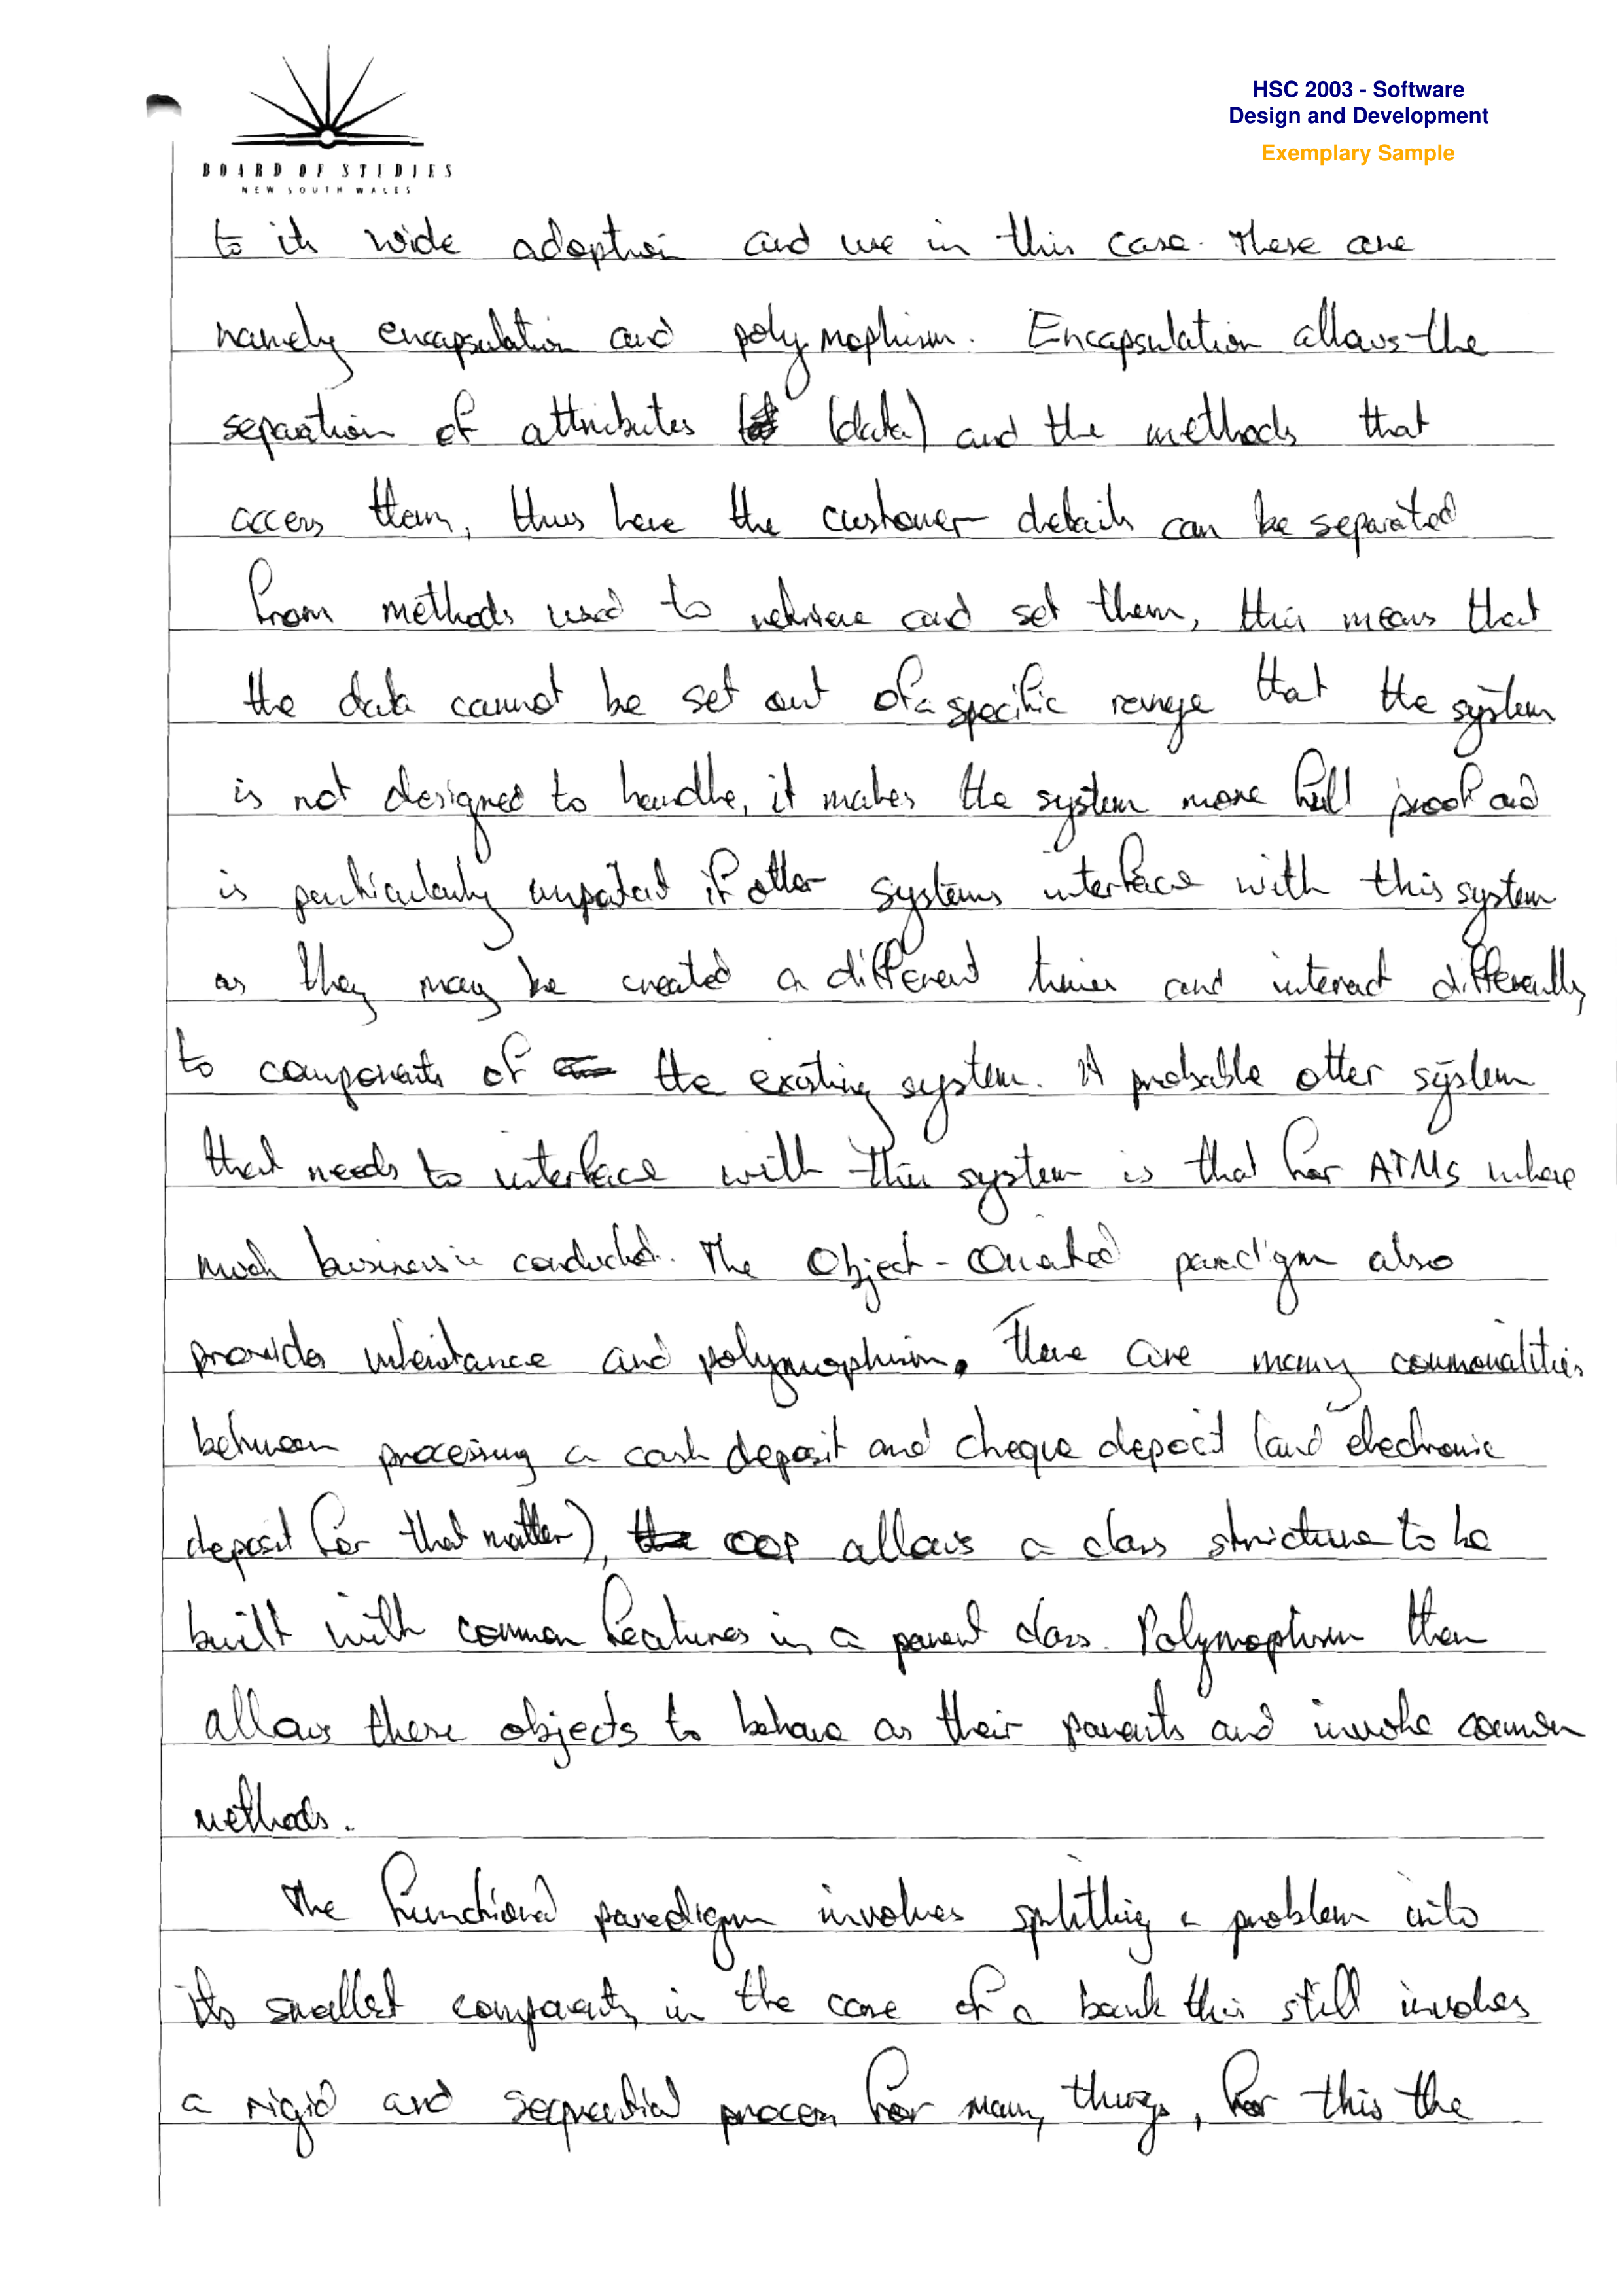 BOARD OF STUDIES
NEW SOUTH WALES
HSC 2003 - Software
Design and Development
Exemplary Sample
to its wide adoption and use in this case. These are
namely encapsulation and polymophism. Encapsulation allows the
separation of attributes (data) and the methods that
access them, thus here the customer details can be separated
from methods used to retrieve and set them, this means that
the data cannot be set out of a specific range that the system
is not designed to handle, it makes the system more full proof and
is particularly important if other systems interface with this system
as they may be created a different times and interact differently
to components of the existing system. A probable other system
that needs to interface with this system is that for ATMs where
much business is conducted. The Object-Oriented paradigm also
provides inheritance and polymophism. There are many commonalities
between processing a cash deposit and cheque deposit (and electronic
deposit for that matter), the OOP allows a class structure to be
built with common features in a parent class. Polymophism then
allows these objects to behave as their parents and invoke common
methods.
The functional paradigm involves splitting a problem into
its smallest components, in the case of a bank this still involves
a rigid and sequential process for many things, for this the